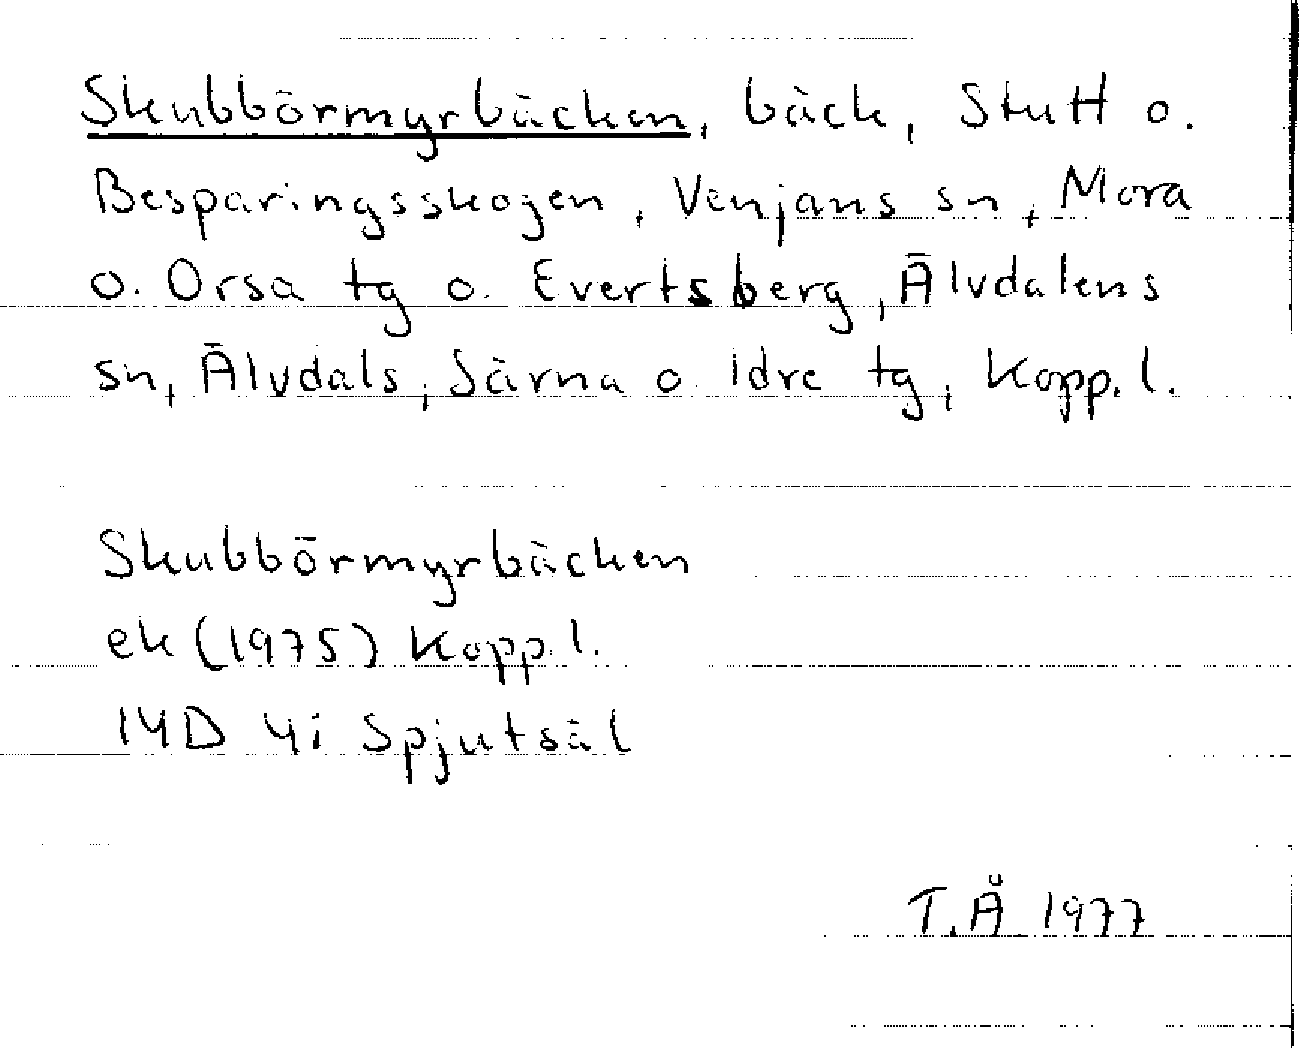 Skubbörmyrbäcken, bäck, Stutt o.
Besparingsskogen, Venjans sn, Mora
o. Orsa tg o. Evertsberg, Älvdalens
sn, Älvdals, Särna o Idre tg, Kopp. l.
Skubbörmyrbäcken
ek (1975) Kopp. l.
14D 4i Spjutsäl
T.Å 1977